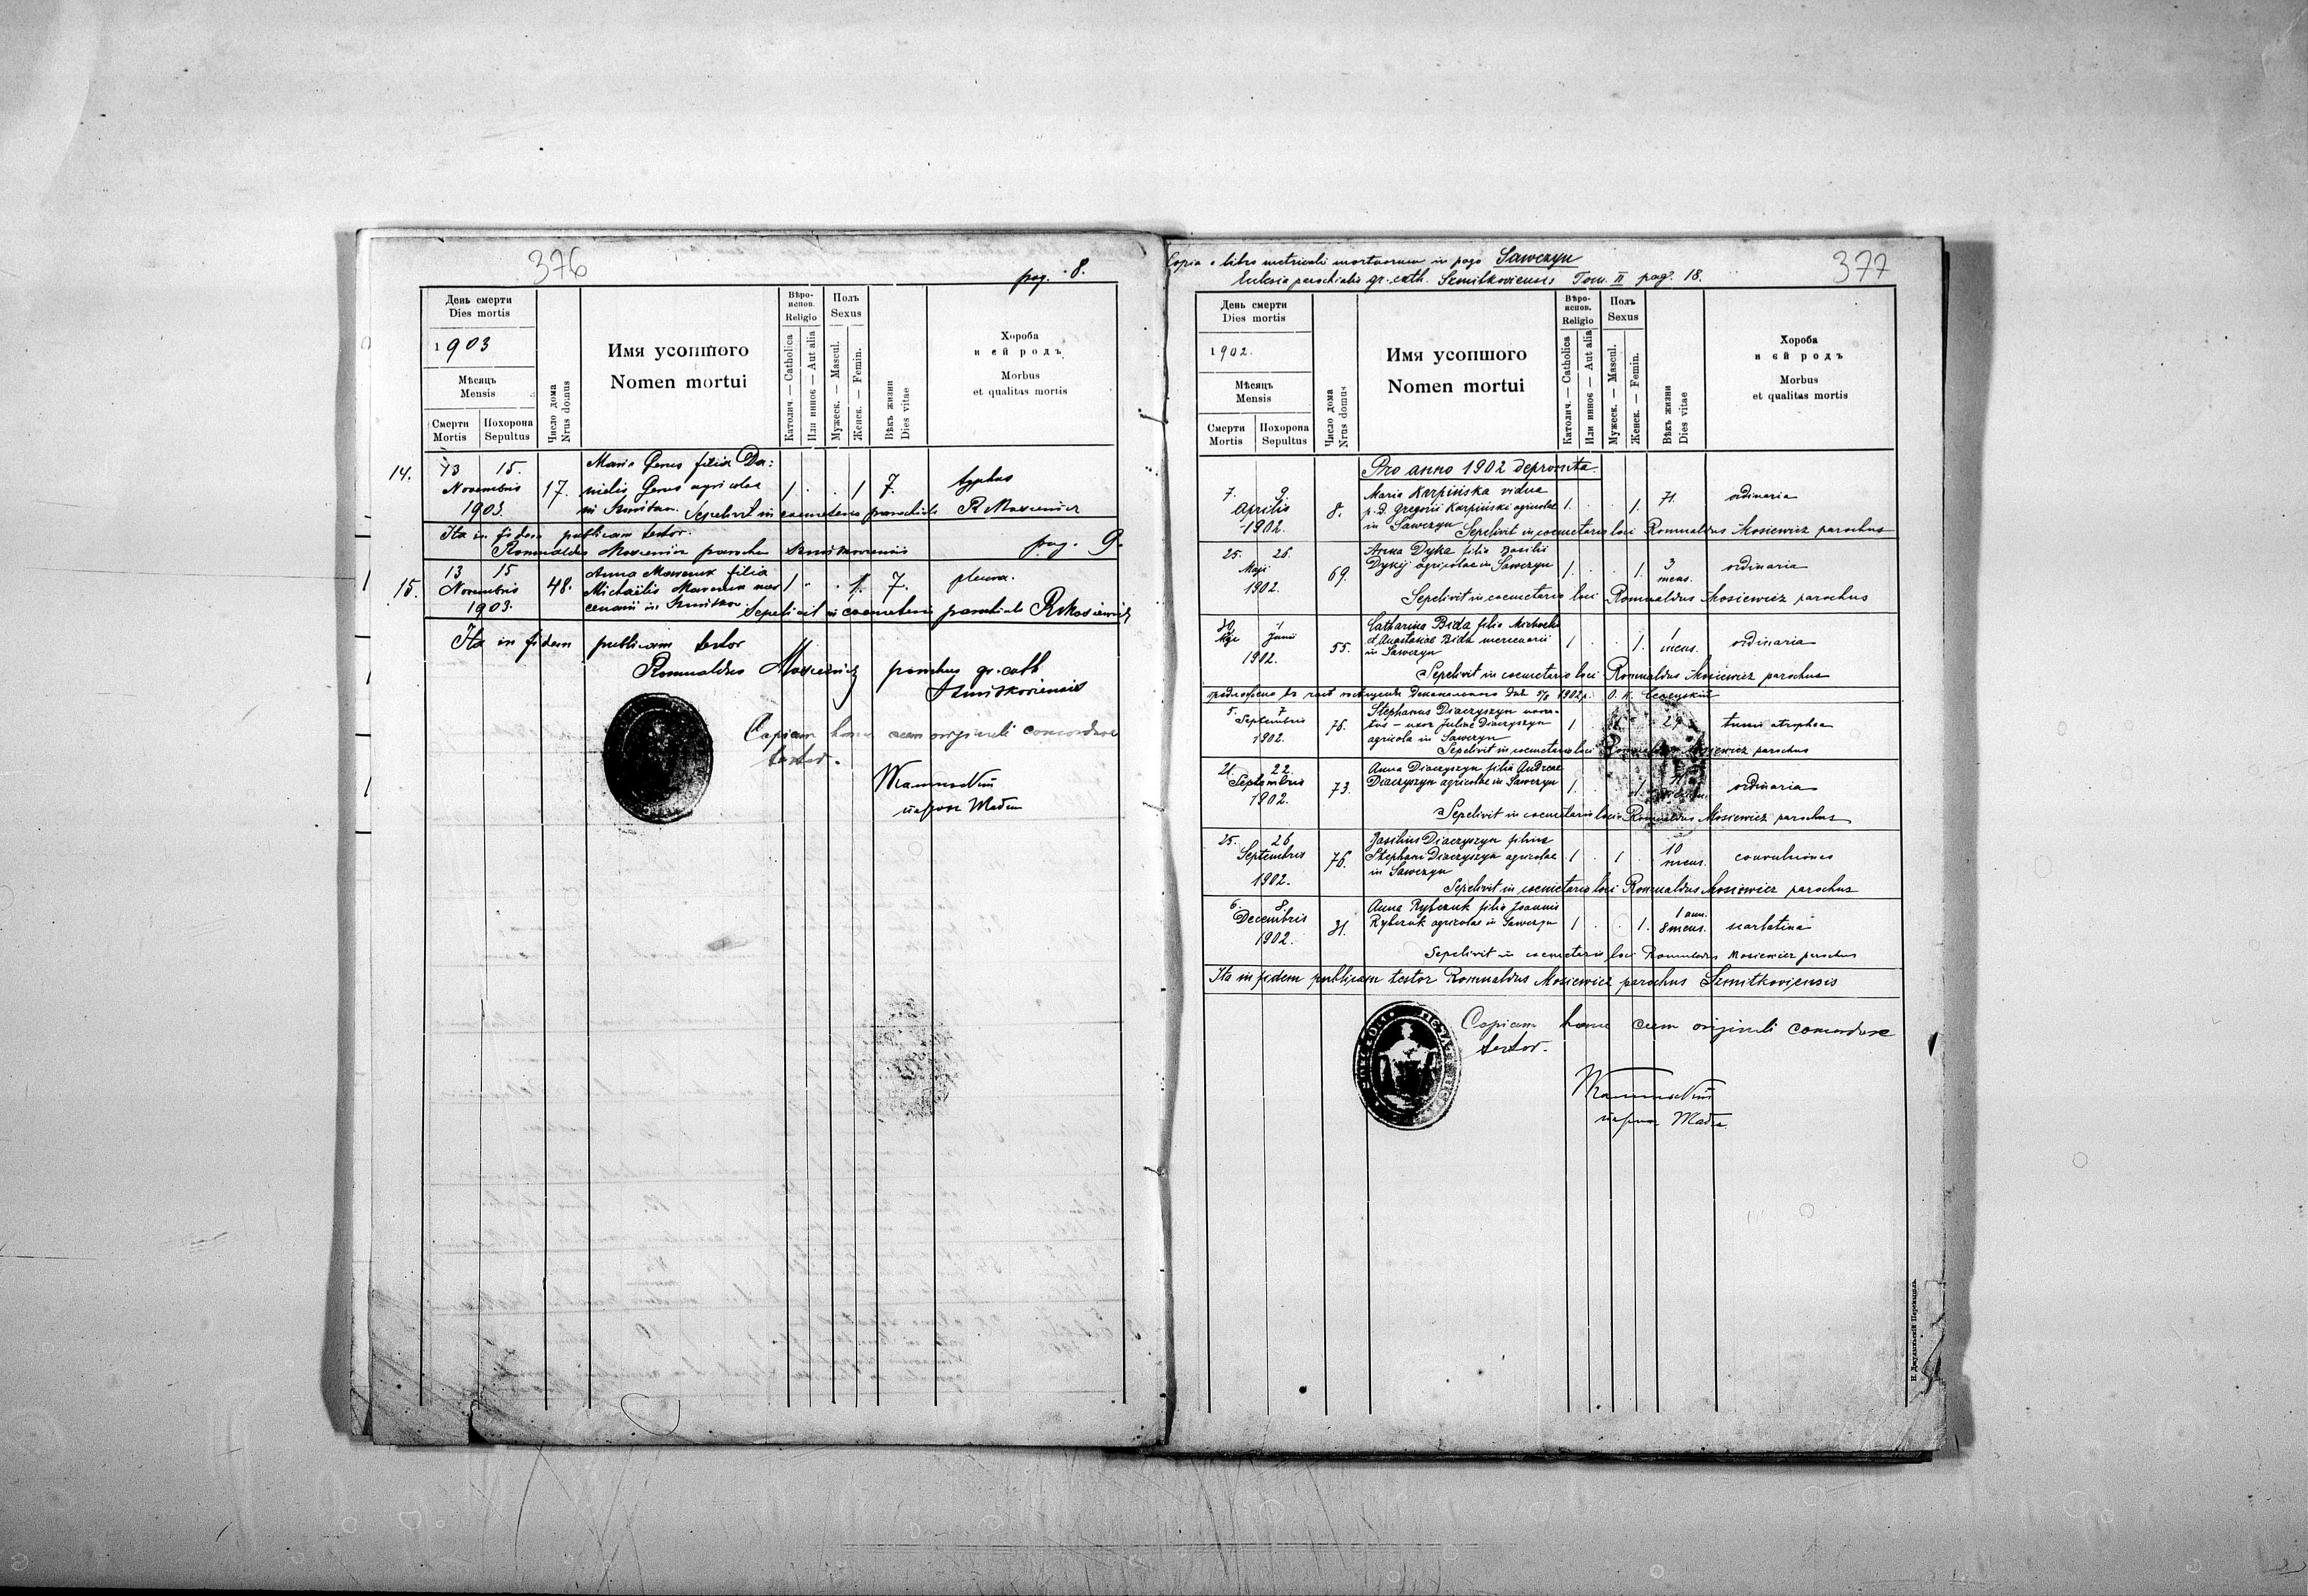 376
pag. 8.
День смерти
Dies mortis
1903
Мѣсяцъ
Mensis
Смерти
Mortis
Похорона
Sepultus
Число дома
Nrus domus
Имя усопшого
Nomen mortui
Вѣро-
испов.
Religio
Католич. — Catholica
Или иннос — Aut alia
Полъ
Sexus
Мужеск. — Mascul.
Женск. — Femin.
Вѣкъ жизни
Dies vitae
Хороба
и ей родъ
Morbus
et qualitas mortis
14. 13 15. Novembris 1903. 17.
Maria Gerus filia Da:
nielis Gerus agricolae
in Szmitkow. Sepelivit in coemeterio parochiali R Mosiewicz
1 . . 1 7. typhus
Ita in fidem publicam testor.
Romualdus Mosiewicz parochus Szmitkoviensis pag. 9.
15. 13 15 Novembris 1903. 48.
Anna filia
Michaëlis mer
cenarii in Szmitkow Sepelivit in coemeterio parochiali R Mosiewicz
1 . . 1. 7.
Ita in fidem publicam testor
Romualdus Mosiewicz parochus gr. cath
Szmitkoviensis
Copiam hanc cum originali concordare
testor.
377
Copia e libro metricali mortuorum in pago Sawczyn
Eclesia parochialis gr. cath. Szmitkoviensis Tom. II pag. 18.
День смерти
Dies mortis
1902.
Мѣсяцъ
Mensis
Смерти
Mortis
Похорона
Sepultus
Число дома
Nrus domus
Имя усопшого
Nomen mortui
Вѣро-
испов.
Religio
Католич. — Catholica
Или иннос — Aut alia
Полъ
Sexus
Мужеск. — Mascul.
Женск. — Femin.
Вѣкъ жизни
Dies vitae
Хороба
и ей родъ
Morbus
et qualitas mortis
Pro anno 1902 depromta
7. 9. Aprilis 1902. 8.
Maria Karpińska vidua
p. d. Gregorii Karpiński agricolae
in Sawczyn Sepelivit in coemeterio loci Romualdus Mosiewicz parochus
1. . . 1. 71. ordinaria
25. 26. Maji 1902. 69.
Anna Dyka filia Basilii
Dykij agricolae in Sawczyn
1. . . 1. 3 mens. ordinaria
Sepelivit in coemeterio loci Romualdus Mosiewicz parochus
30 Maji 1 Junii 1902. 55.
Catharina Bida filia Michaelis
et Anastasiae Bida mercenarii
in Sawczyn
1 . . 1. 1 mens. ordinaria
Sepelivit in coemeterio loci Romualdus Mosiewicz parochus
5. 7 Septembris 1902. 76.
Stephanus Diaczyszyn uxora-
tus – uxor Juliae Diaczyszyn
agricola in Sawczyn
Sepelivit in coemeterio loci Romualdus Mosiewicz parochus
21. 22. Septembris 1902. 73.
Anna Diaczyszyn filia Andreae
Diaczyszyn agricolae in Sawczyn
1. ordinaria
Sepelivit in coemeterio loci Romualdus Mosiewicz parochus
25. 26 Septembris 1902. 76.
Basilius Diaczyszyn filius
Stephani Diaczyszyn agricolae
in Sawczyn
1 . 1 . 10 mens. convulsiones
Sepelivit in coemeterio loci Romualdus Mosiewicz parochus
6. 8. Decembris 1902. 31.
Anna Rybczuk filia Joannis
Rybczuk agricolae in Sawczyn
1 . . 1. 1 ann. 8 mens. scarlatina
Sepelivit in coemeterio loci Romualdus Mosiewicz parochus
Ita in fidem publicam testor Romualdus Mosiewicz parochus Szmitkoviensis
Copiam hanc cum originali concordare
testor.